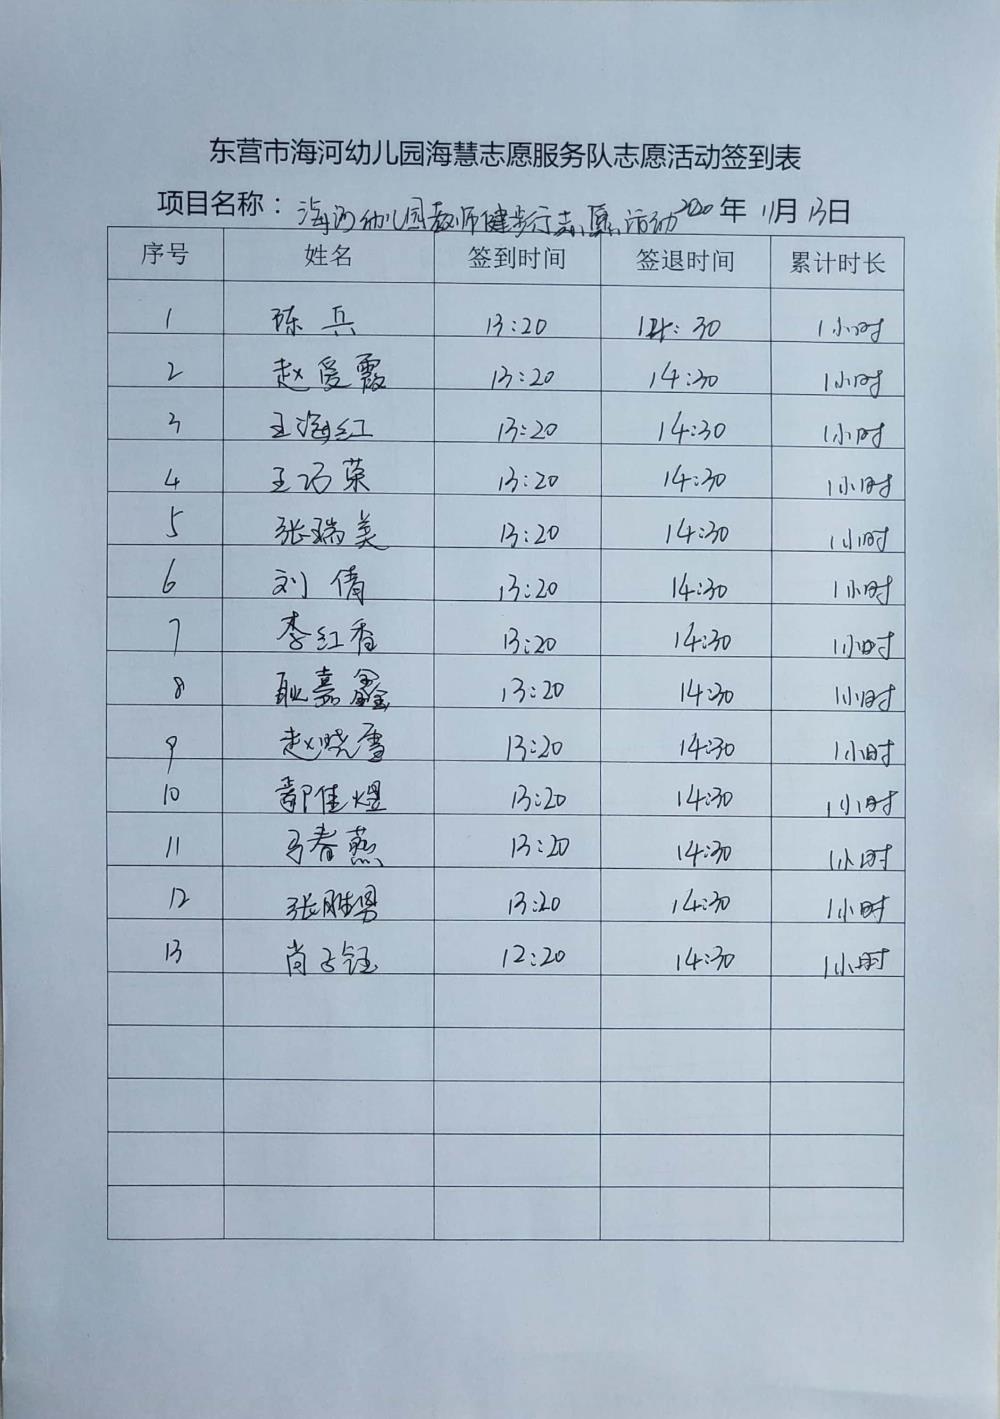 东营市海河幼儿园海慧志愿服务队志愿活动签到表
项目名称：海河幼儿园教师健步行志愿活动 2020年 11月 13日
序号 姓名 签到时间 签退时间 累计时长
1 陈兵 13:20 14:30 1小时
2 赵爱霞 13:20 14:30 1小时
3 王海红 13:20 14:30 1小时
4 王巧荣 13:20 14:30 1小时
5 张瑞美 13:20 14:30 1小时
6 刘倩 13:20 14:30 1小时
7 李红香 13:20 14:30 1小时
8 耿嘉鑫 13:20 14:30 1小时
9 赵晓雪 13:20 14:30 1小时
10 鄢佳煜 13:20 14:30 1小时
11 马春燕 13:20 14:30 1小时
12 张胜男 13:20 14:30 1小时
13 肖子钰 12:20 14:30 1小时